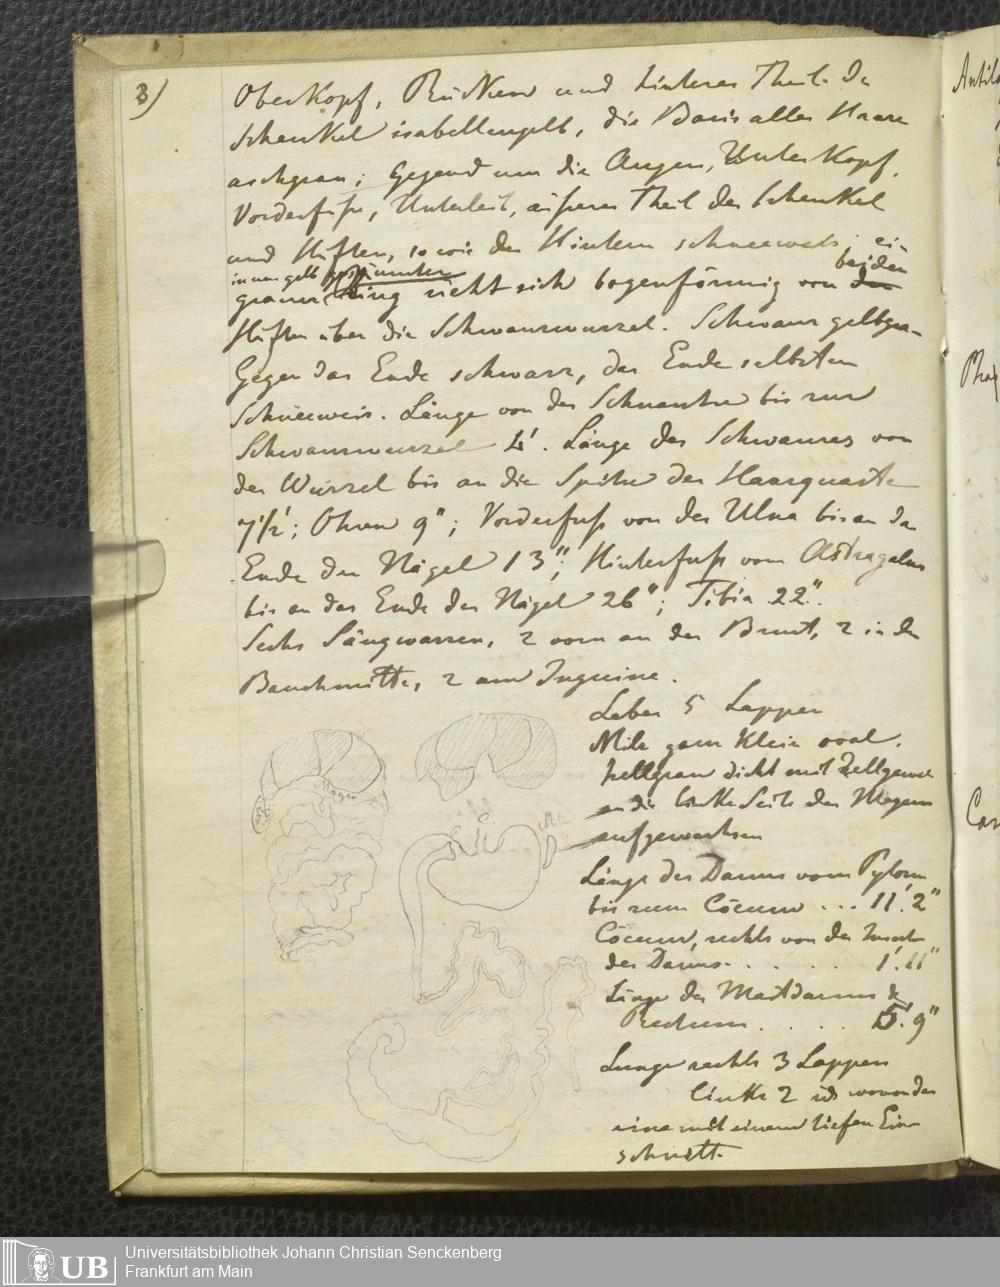 3)
Oberkopf, Rücken und hinterer Theil de
Schenkel isabellengelb, die Basis aller Haare
aschgrau; Gegend um die Augen, Unterkopf,
Vorderfüsse, Unterleib, äusserer Theil der Schenkel
und Hüften, so wie der Hintern schneeweis, ein
innen gelb beiden
grauer Ring zieht sich bogenförmig von den
Hüften über die Schwanzwurzel. Schwanz gelbgrau
Gegen das Ende schwarz, das Ende selbsten
Schneeweis. Länge von der Schnautze bis zur
Schwanzwurzel. Länge des Schwanzes von
der Wurzel bis an die Spitze der Haarquaste
7 1/2'; Ohren 9"; Vorderfuss von der Ulna bis an da
Ende der Nägel 13"; Hinterfuss vom Astragalus
bis an das Ende der Nägel 26"; Tibia 22".
Sechs Säugwarzen, 2 vorn an der Brust, 2 in der
Bauchmitte, 2 am Inguine.
Leber 5 Lappen
Milz ganz klein oval.
hellgrau dicht mit Zellgewe
an die linke Seite des Magens
aufgewachsen
Länge des Darms vom Pylorus
bis zum Cöcum ... 11'. 2"
Cöcum, rechts von der Insert
des Darms. . . . . . 1'. 11"
Länge des Mastdarms &
Rectum . . . . 5'. 9"
Lunge rechts 3 Lappen
links 2 wovon der
eine mit einem tiefen Ein-
schnitt.
Magen
Milz
Antilo
Cas
UB
Universitätsbibliothek Johann Christian Senckenberg
Frankfurt am Main